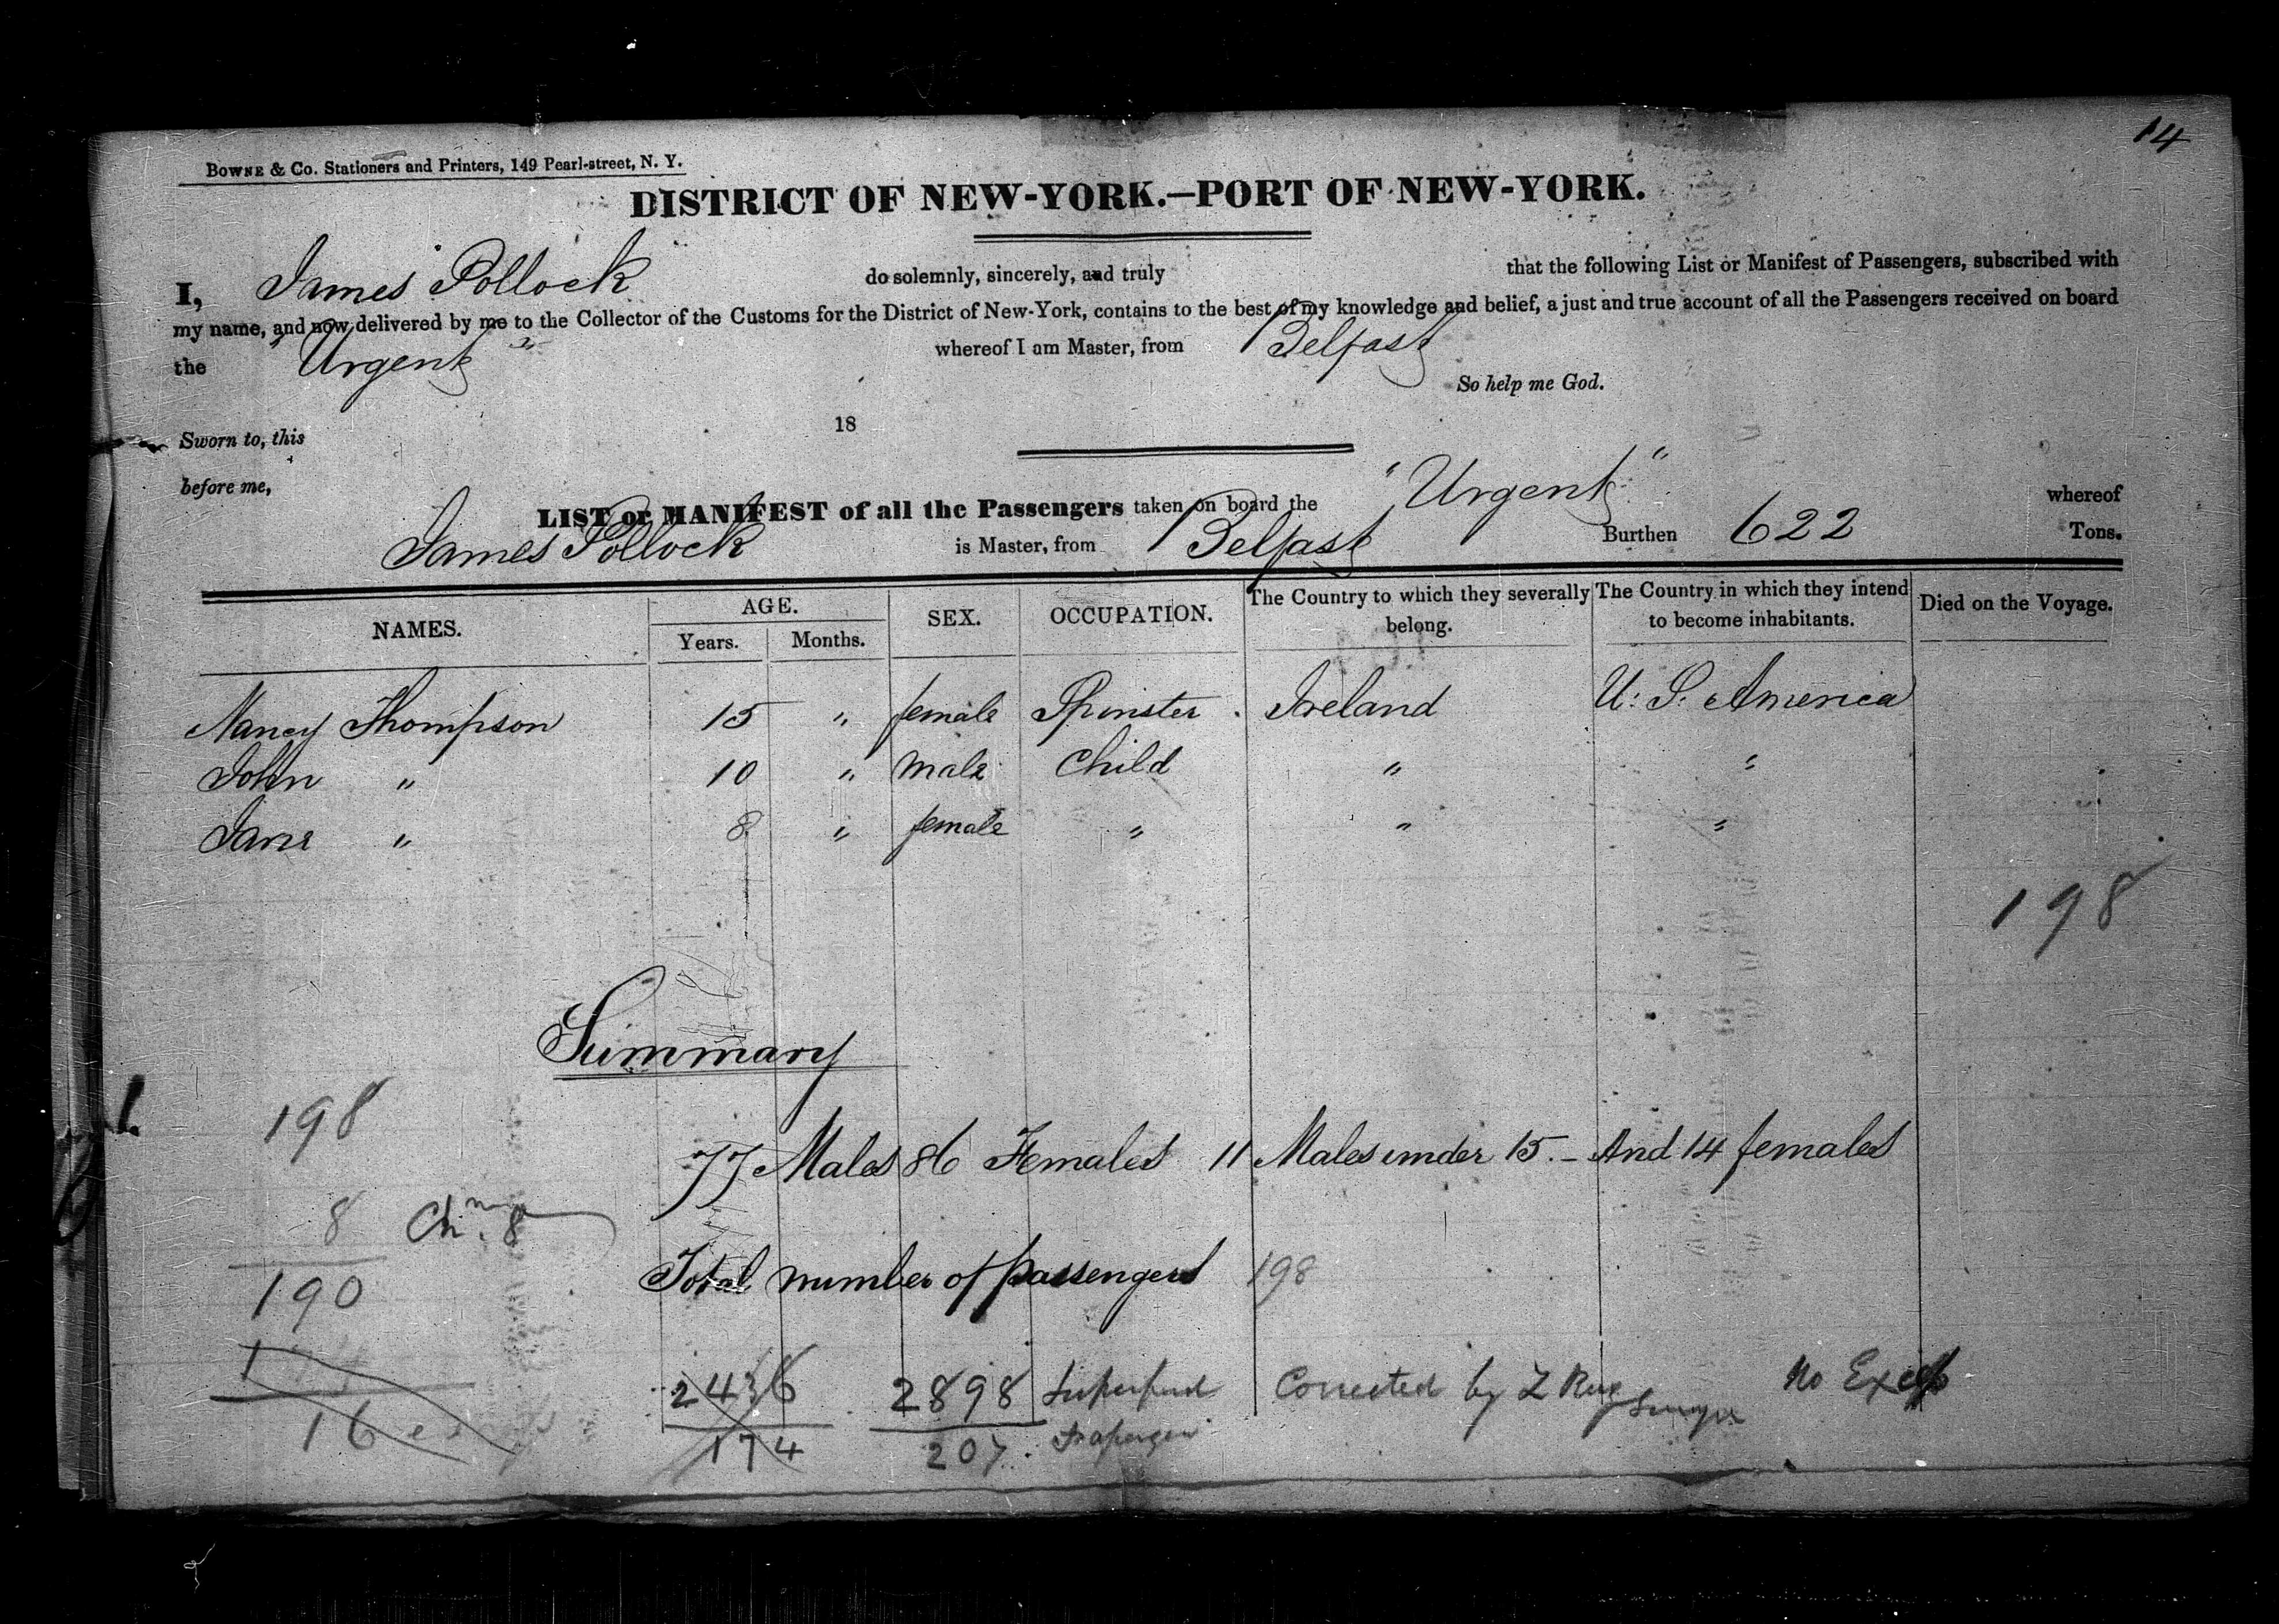 14
BOWNE & CO. Stationers and Printers, 149 Pearl-street, N. Y.
DISTRICT OF NEW-YORK.—PORT OF NEW-YORK.
I, James Pollock do solemnly, sincerely, and truly that the following List or Manifest of Passengers, subscribed with
my name, and now delivered by me to the Collector of the Customs for the District of New-York, contains to the best of my knowledge and belief, a just and true account of all the Passengers received on board
the "Urgent" whereof I am Master, from Belfast
So help me God.
Sworn to, this 18
before me,
LIST or MANIFEST of all the Passengers taken on board the "Urgent" whereof
James Pollock is Master, from Belfast Burthen 622 Tons.
NAMES. AGE. Years. Months. SEX. OCCUPATION. The Country to which they severally belong. The Country in which they intend to become inhabitants. Died on the Voyage.
Nancy Thompson 15 " female Spinster. Ireland U. S. America
John " 10 " male Child " "
Jane " 8 " female " " "
198
Summary
198
77 Males 86 Females 11 Males under 15. - And 14 females
8 Chn. 8
Total number of passengers 198
190
2436 2898 Corrected by No Excess
16 174 207